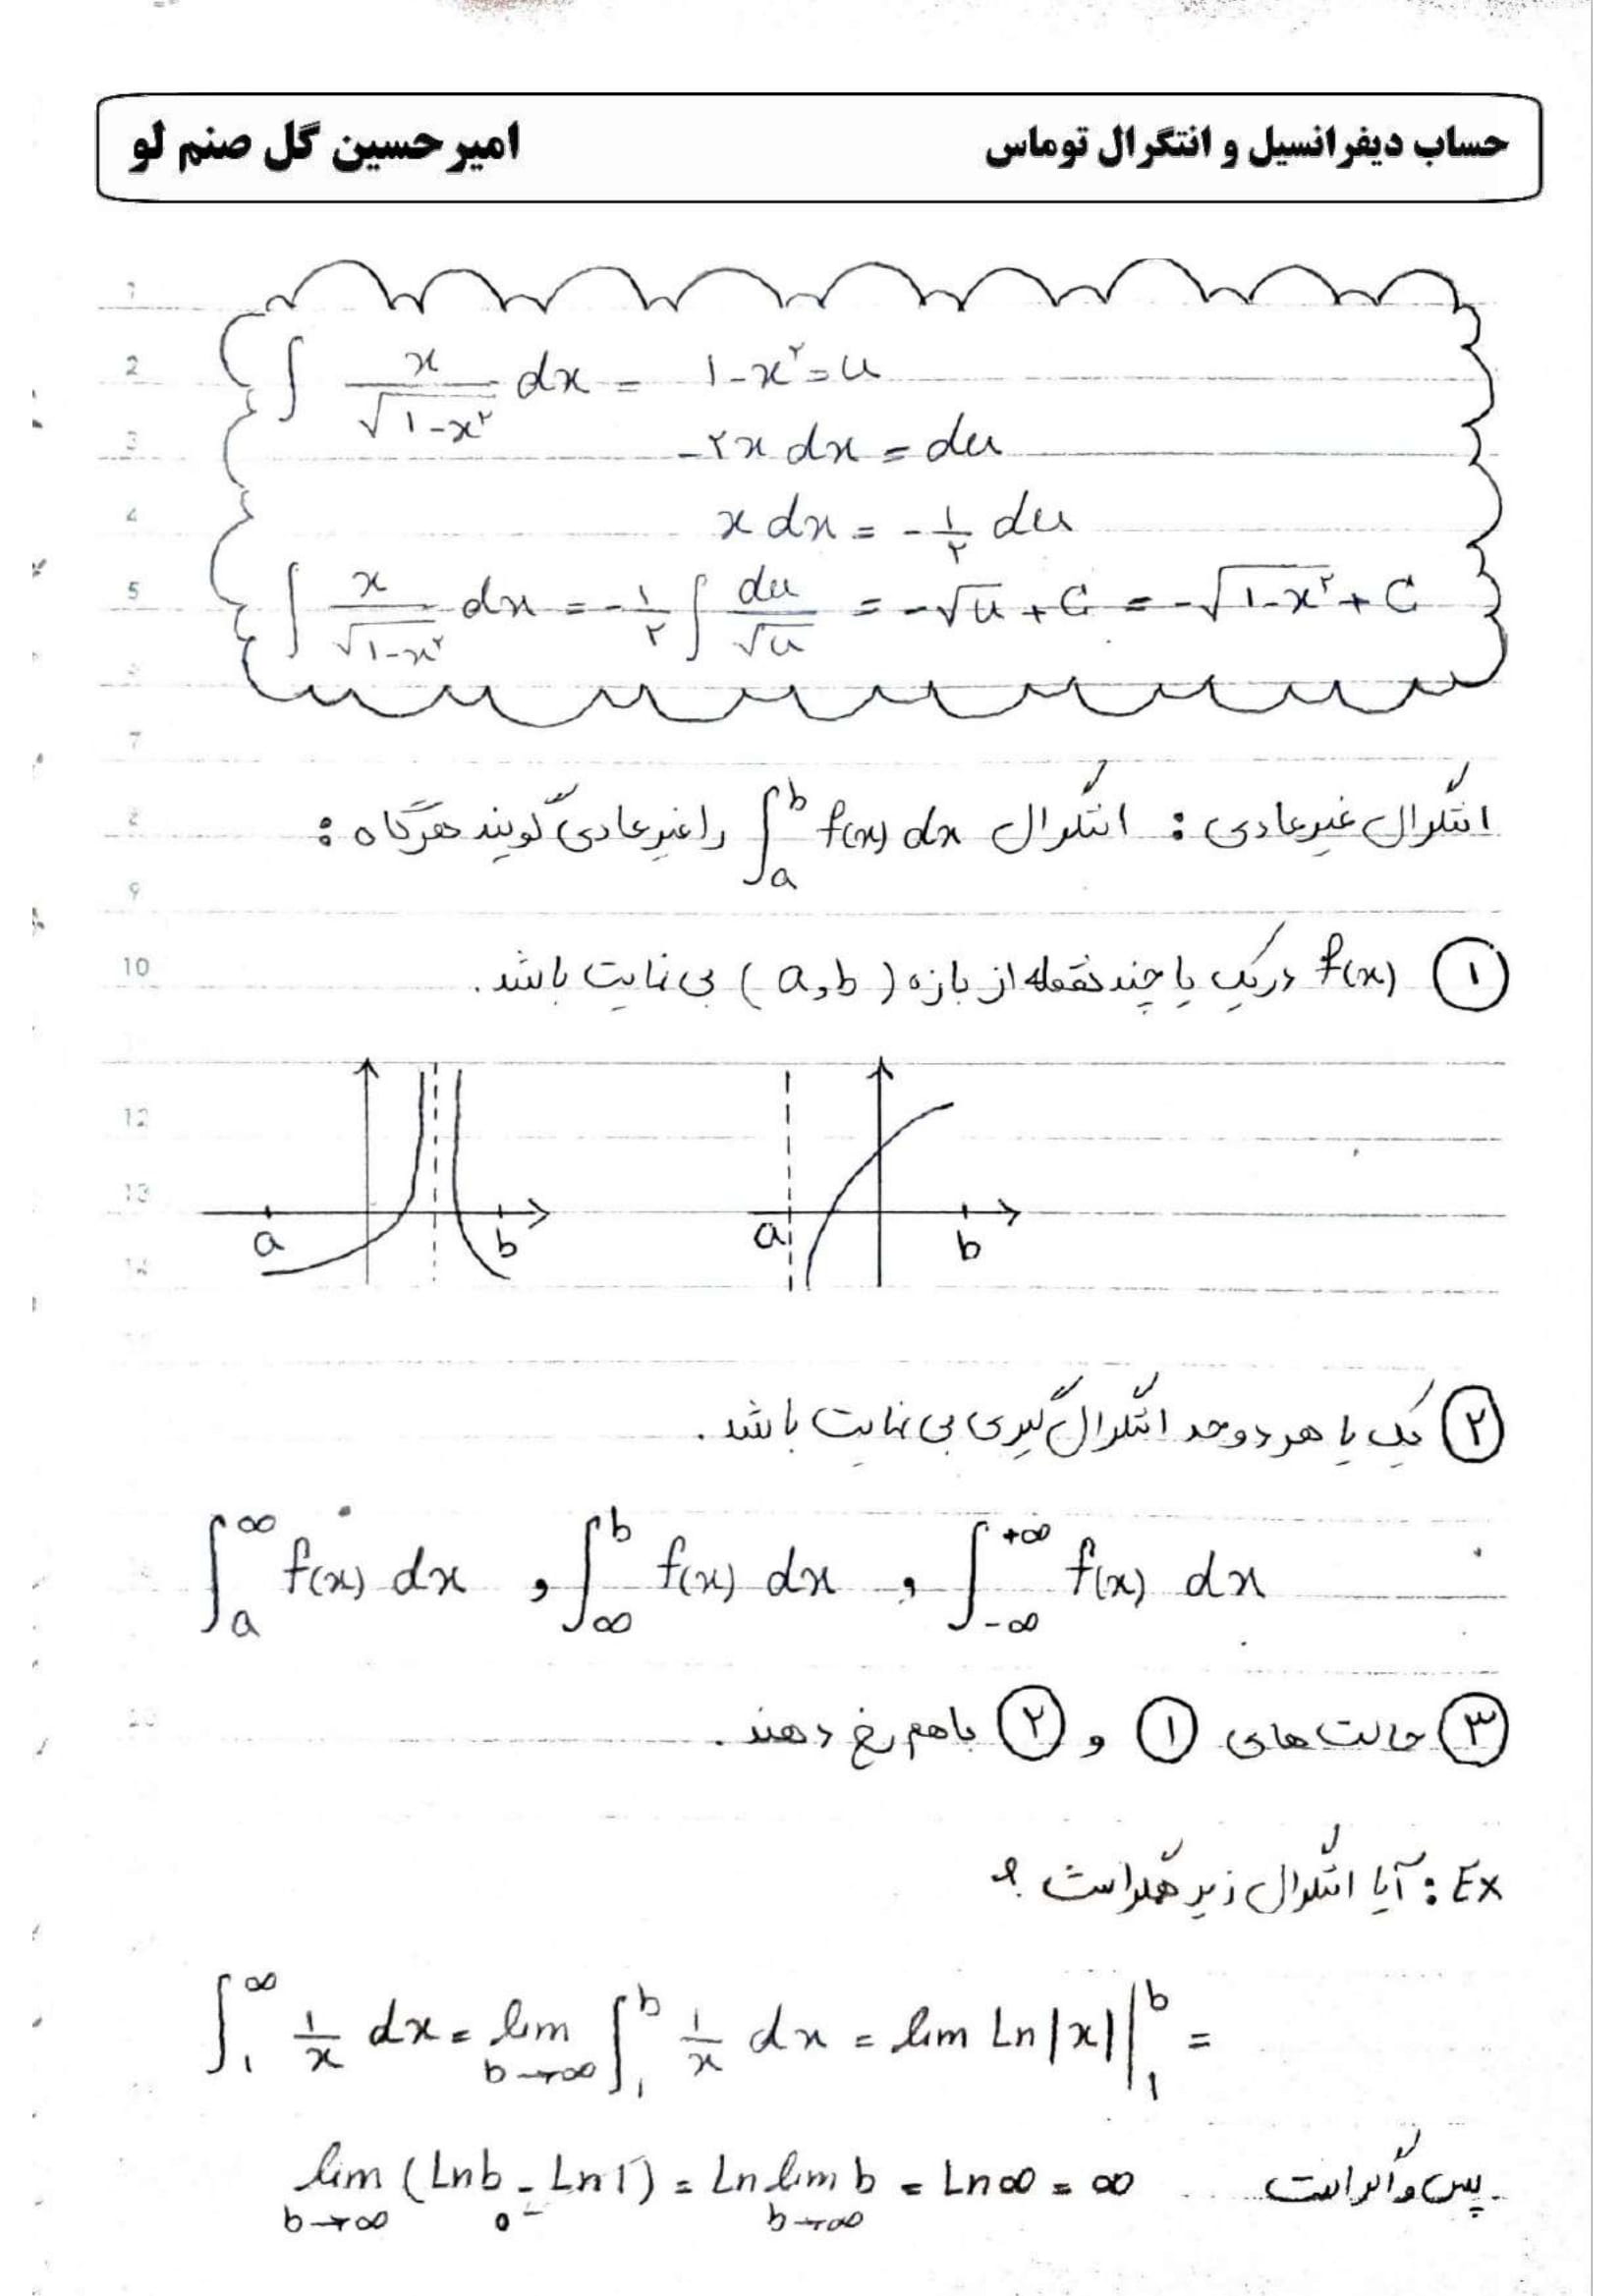 حساب دیفرانسیل و انتگرال توماس
امیرحسین گل صنم لو
∫ x/√(۱-x^۲) dx = ۱-x^۲=u
-۲x dx = du
x dx = -۱/۲ du
∫ x/√(۱-x^۲) dx = -۱/۲ ∫ du/√u = -√u + C = -√(۱-x^۲) + C
انتگرال غیرعادی : انتگرال ∫_a^b f(x) dx را غیرعادی گویند هرگاه :
۱ f(x) در یک یا چند نقطه از بازه (a,b) بی نهایت باشد.
a b a b
۲ یک یا هر دو حد انتگرال گیری بی نهایت باشد.
∫_a^∞ f(x) dx , ∫_∞^b f(x) dx , ∫_-∞^+∞ f(x) dx
۳ حالت های ۱ و ۲ باهم رخ دهند.
Ex : آیا انتگرال زیر همگراست ؟
∫_۱^∞ ۱/x dx = lim_{b→∞} ∫_۱^b ۱/x dx = lim Ln|x| |_1^b =
lim_{b→∞} (Lnb - Ln1) = Ln lim_{b→∞} b = Ln∞ = ∞ پس واگراست.
0
1
2
3
4
5
7
8
9
10
12
13
14